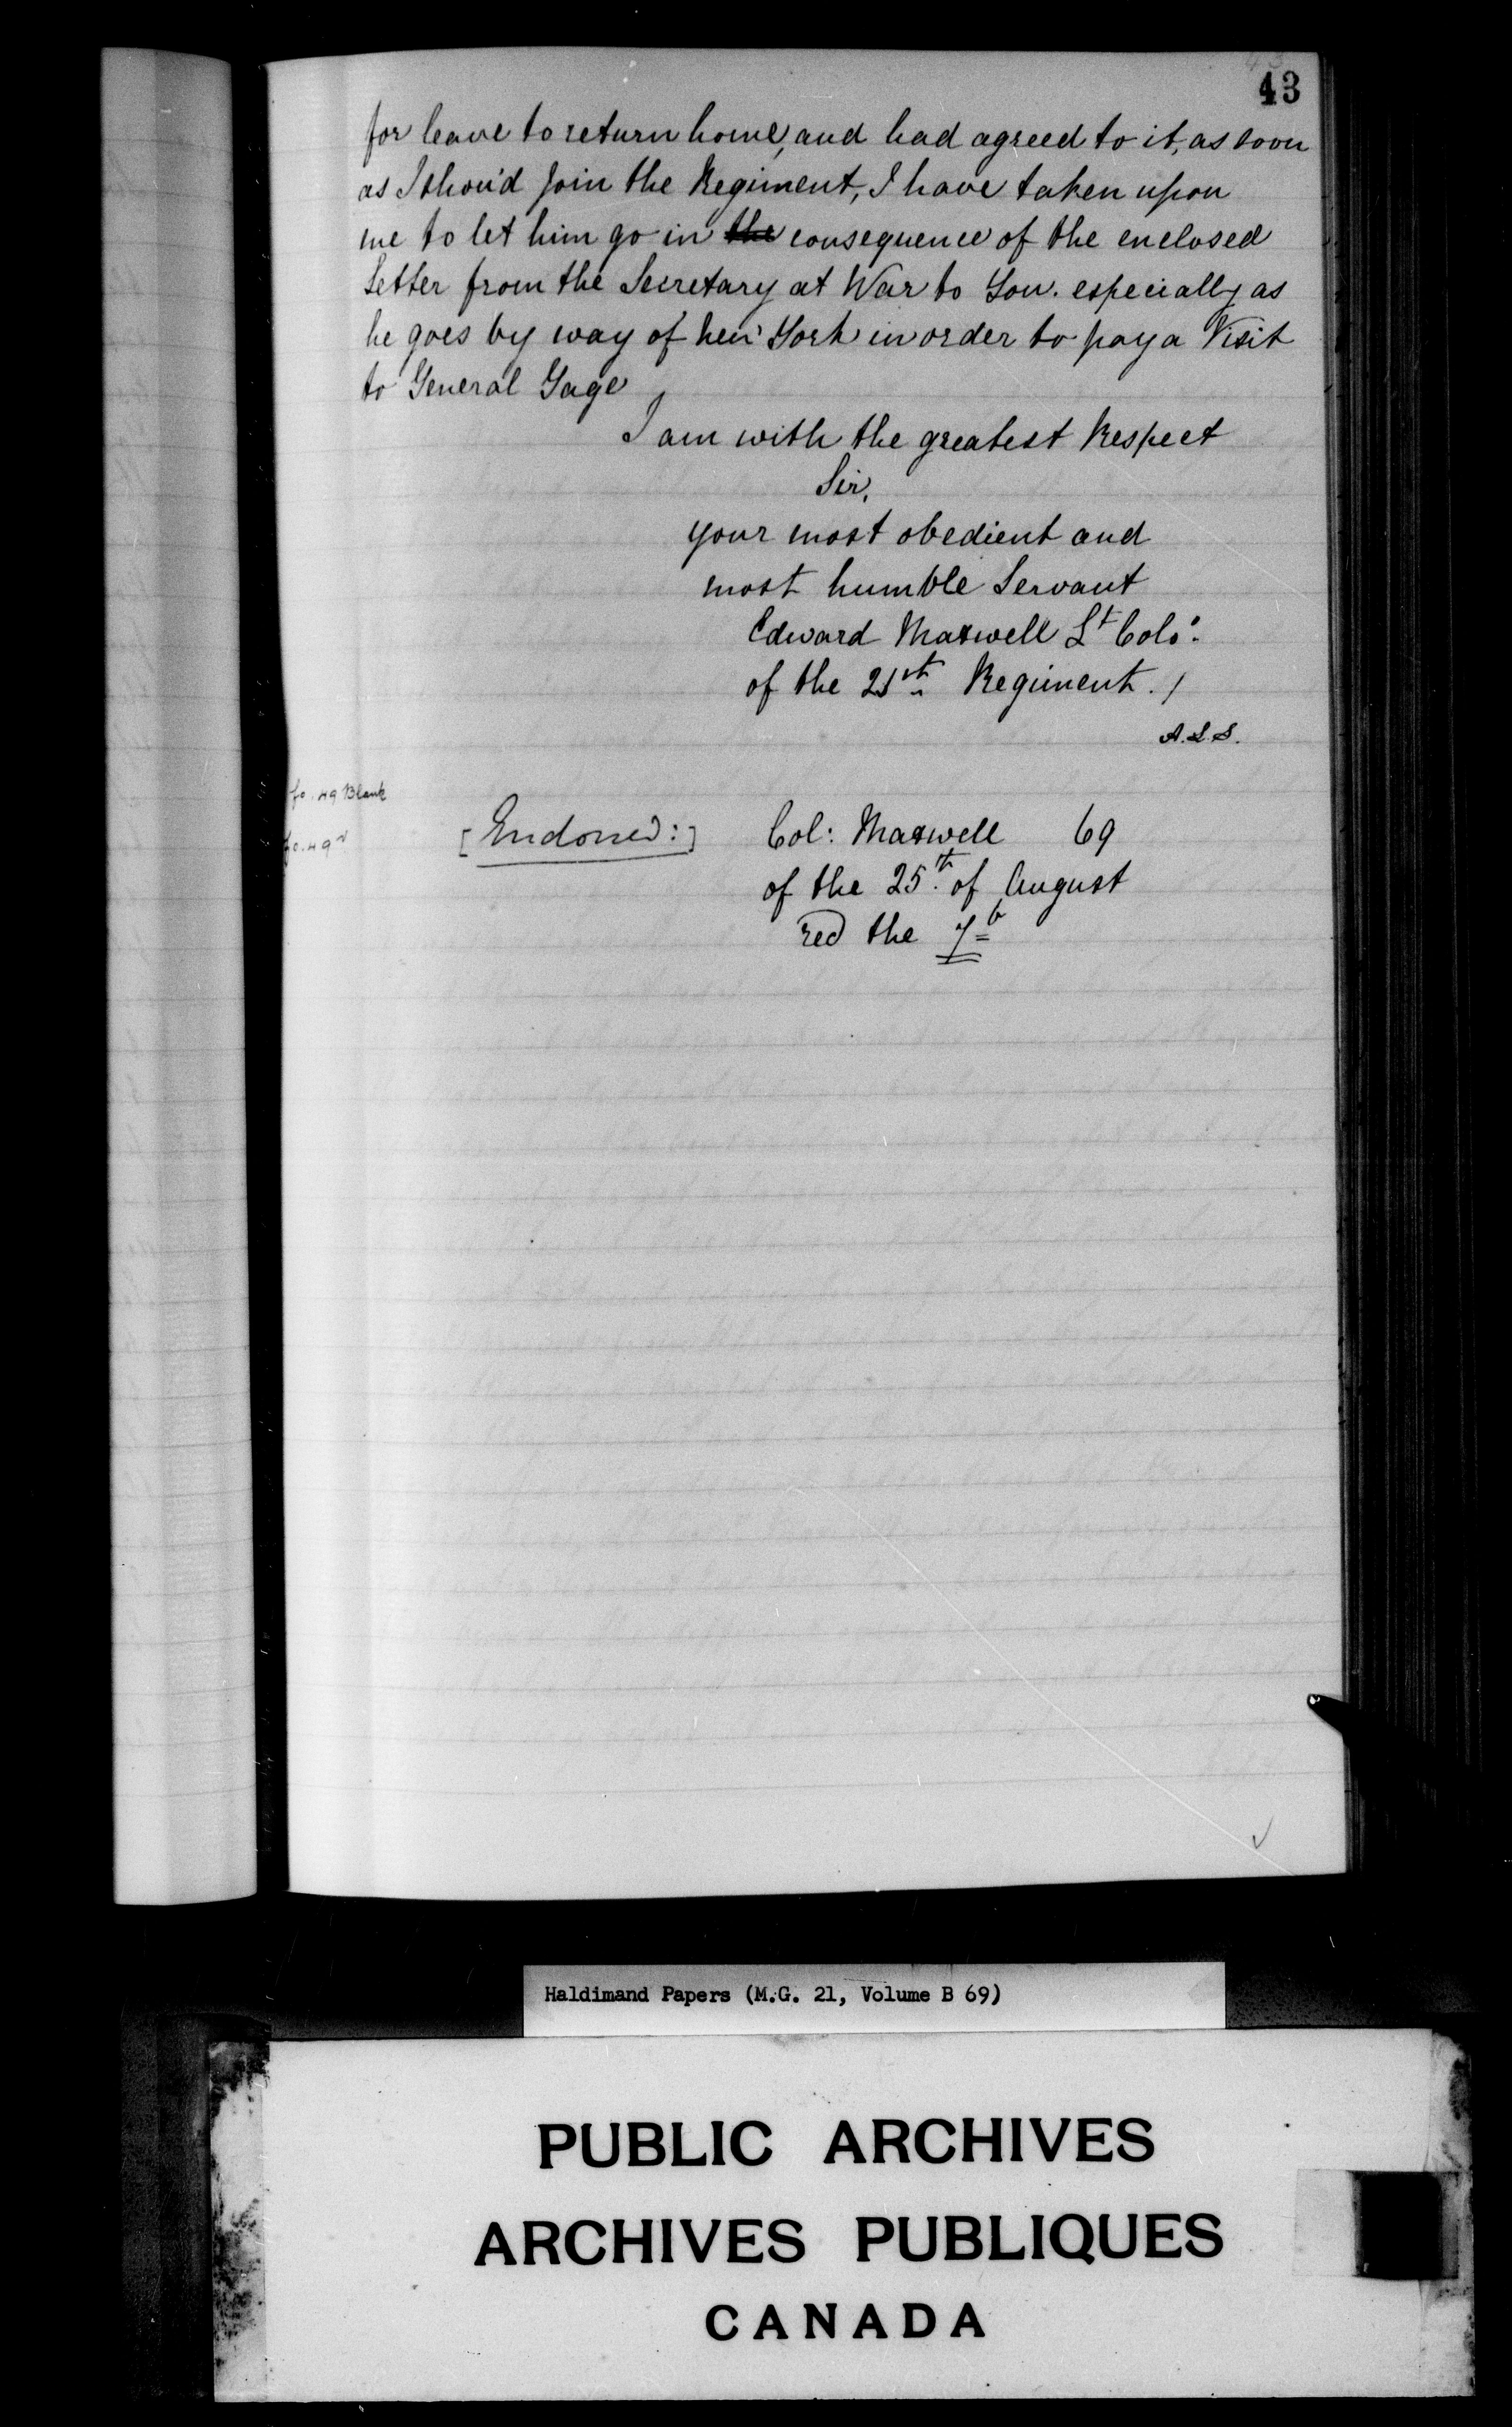 43
for leave to return home, and had agreed to it, as soon
as I shou'd join the Regiment, I have taken upon
me to let him go in the consequence of the enclosed
Letter from the Secretary at War to You. especially as
he goes by way of New York in order to pay a Visit
to General Gage
I am with the greatest Respect
Sir,
your most obedient and
most humble Servant
Edward Maxwell Lt Colo:
of the 21st Regiment. /
A.L.S.
fo. 49 Blank
fo. 49v
[Endorsed:] Col: Maxwell 69
of the 25th of August
red the 7th
Haldimand Papers (M.G. 21, Volume B 69)
PUBLIC ARCHIVES
ARCHIVES PUBLIQUES
CANADA